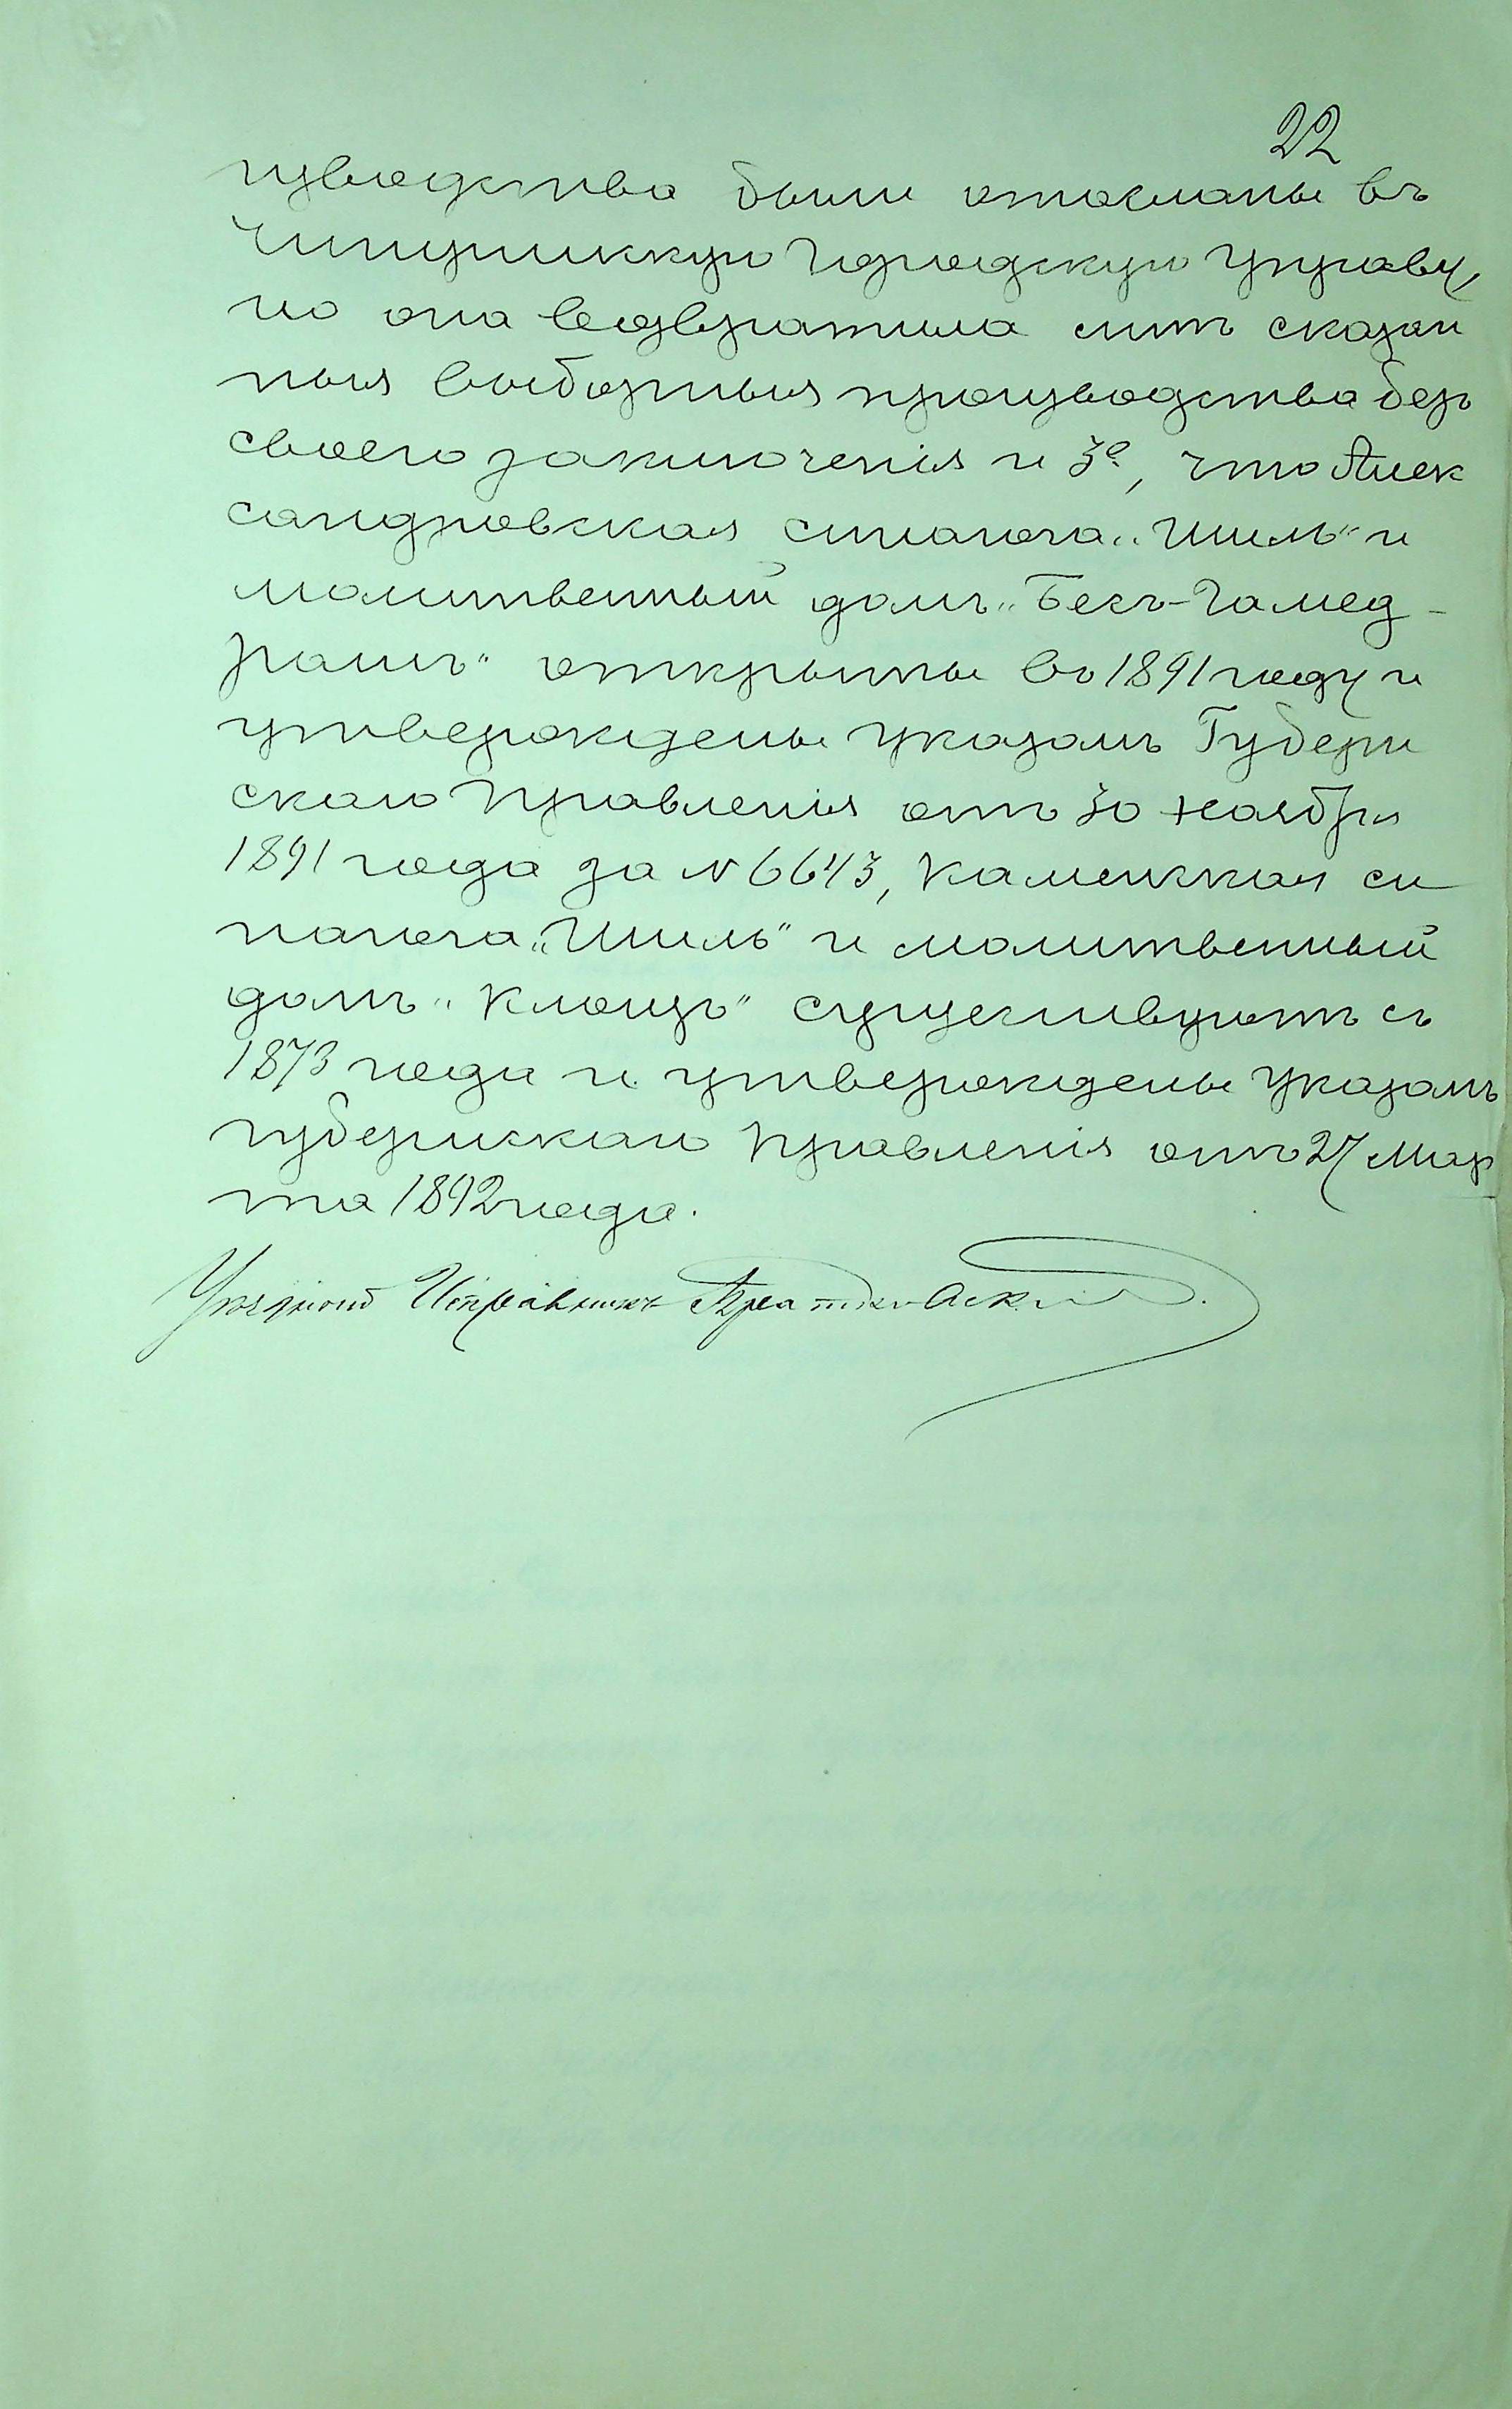 22
изводства были отосланы въ
Чигиринскую Городскую Управу,
но она возвратила мнѣ сказан
ныя выборныя производства безъ
своего заключенія и 3е, что Алек
сандровская синагога „Шиль“ и
молитвенный домъ „Бесъ-Гамед-
рашъ“ открыты въ 1891 году и
утверждены указомъ Губерн
скаго Правленія отъ 30 Ноября
1891 года за № 6643, Каменская си
нагога „Шиль“ и молитвенный
домъ „Клоизъ“ существуютъ съ
1873 года и утверждены указомъ
Губернскаго Правленія отъ 27 Мар
та 1892 года.
Уѣздный Исправникъ